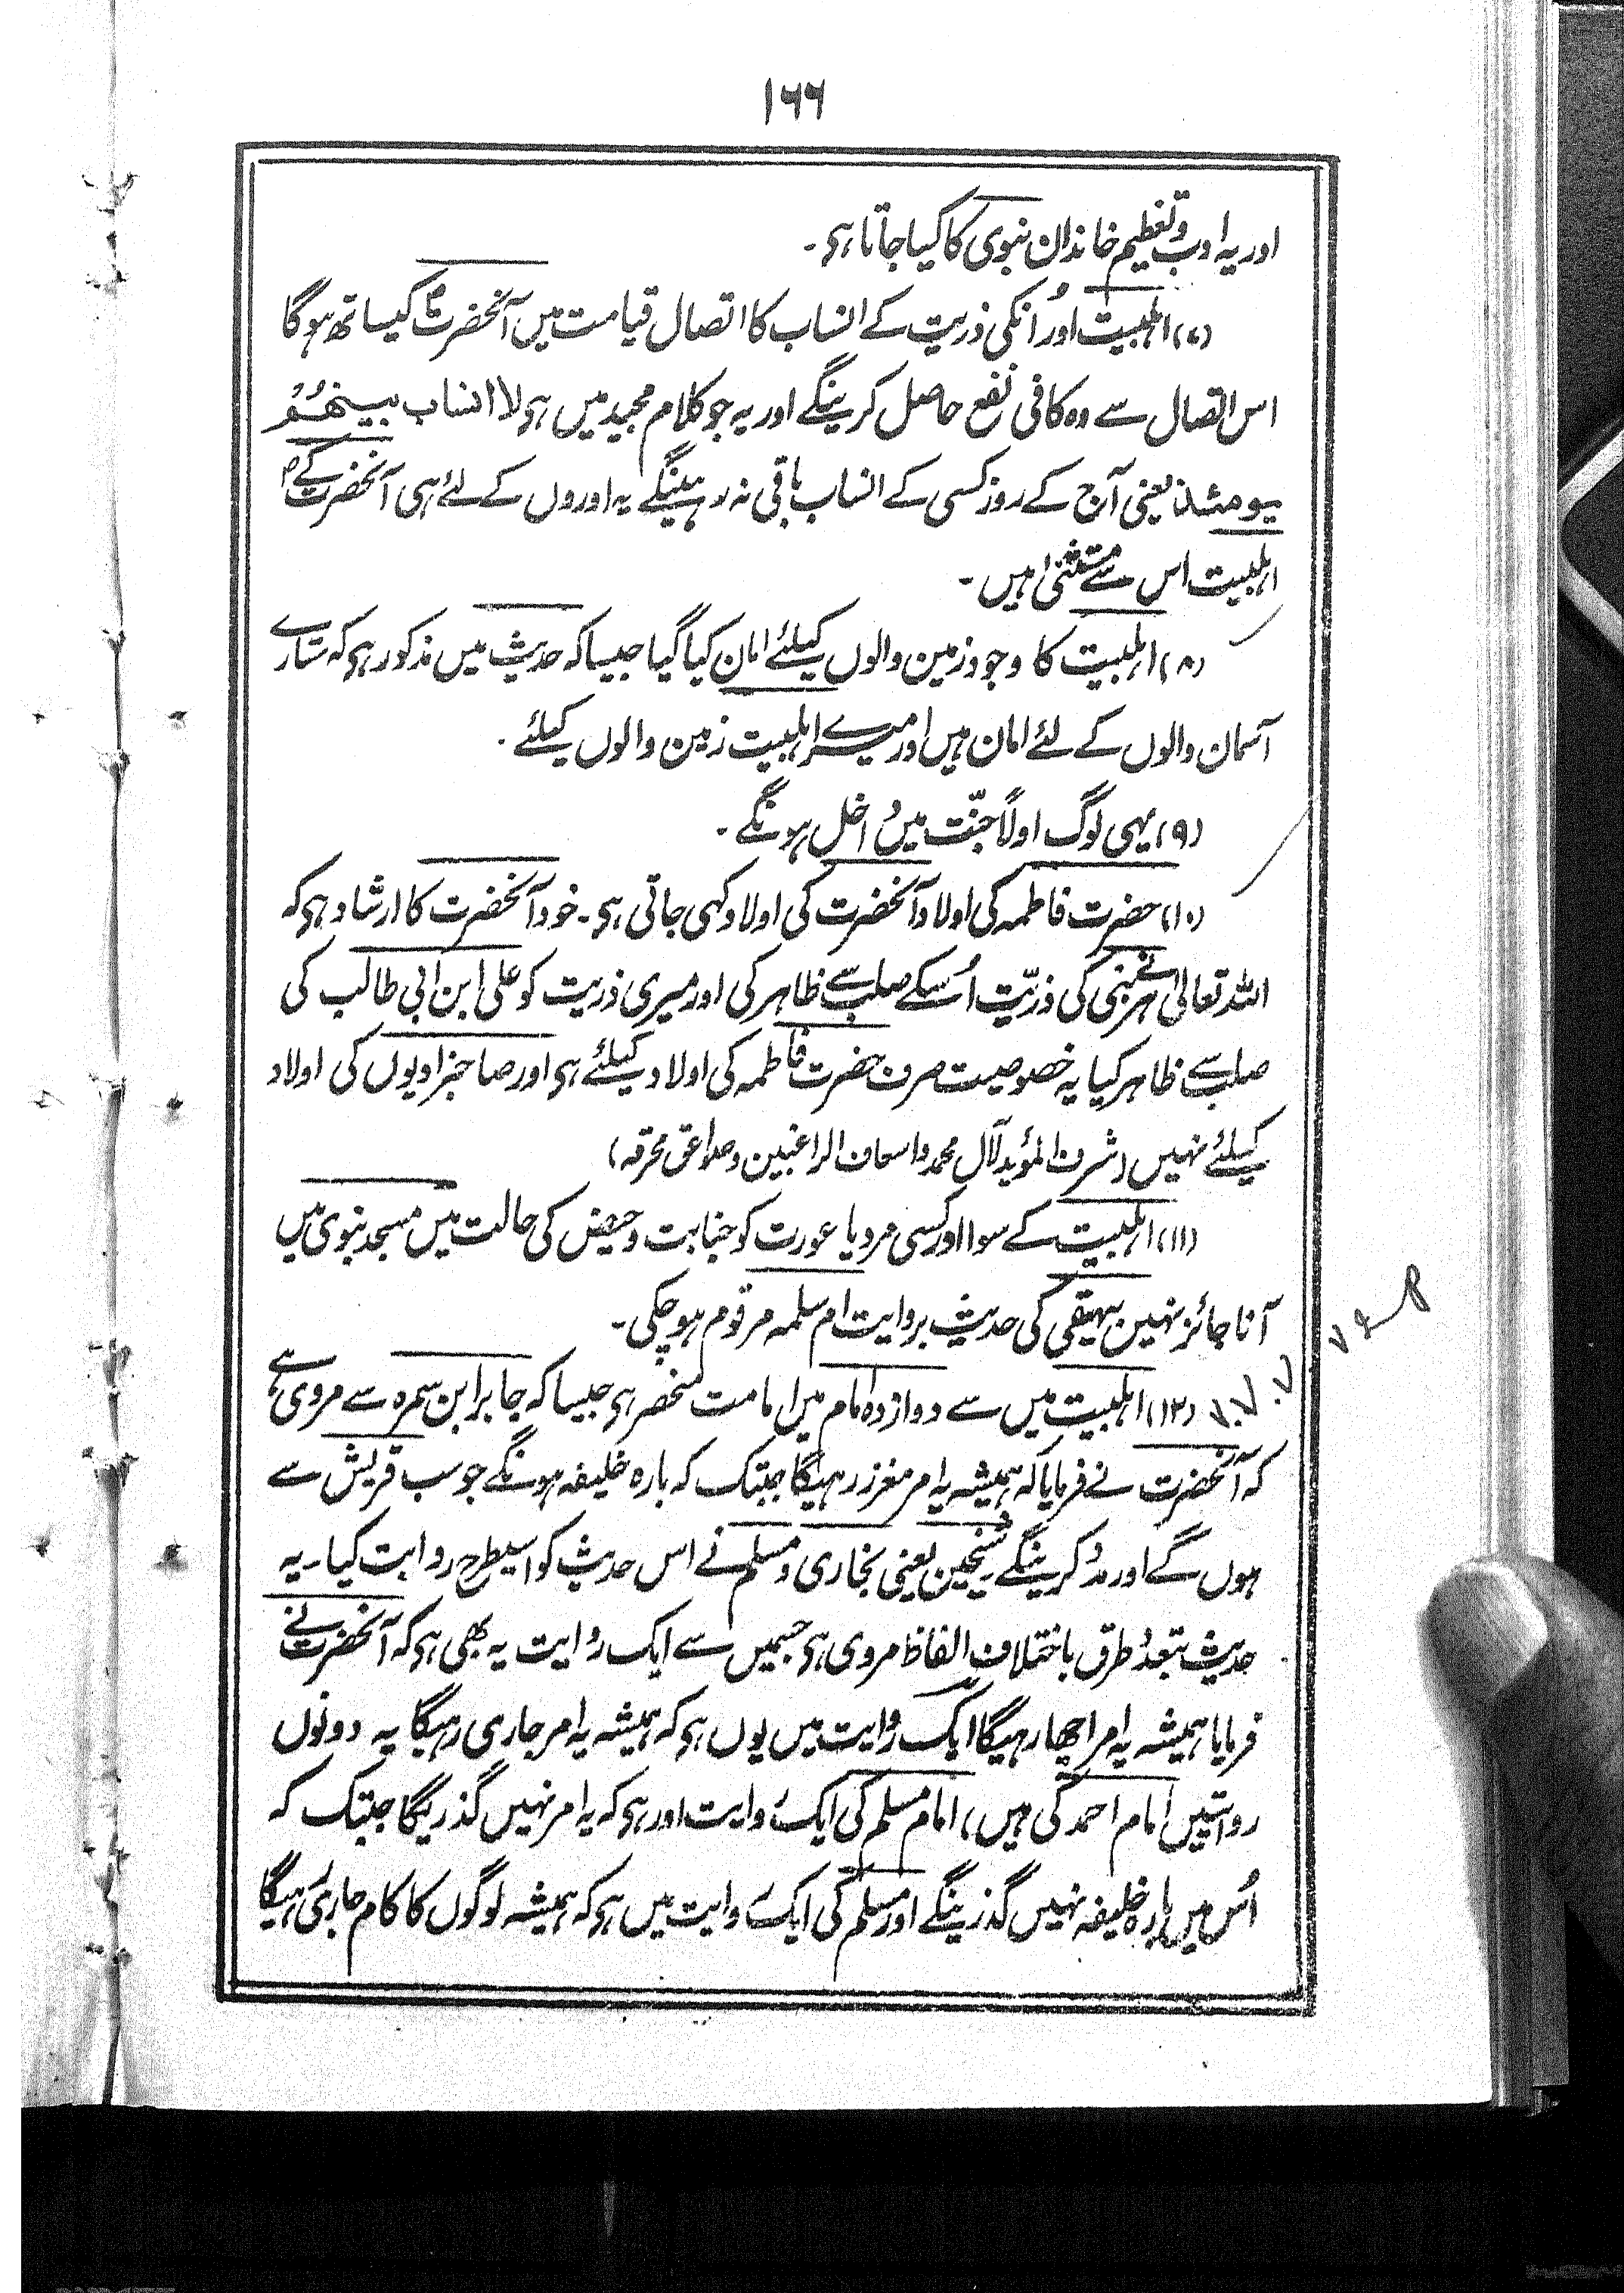 ۱۶۶
اور یہ ادب و تعظیم خاندان نبوی کا کیا جاتا ہی۔
(۷) اہلبیت اور اُنکی ذریت کے انساب کا اتصال قیامت میں آنحضرتؐ کیساتھ ہوگا
اس اتصال سے وہ کافی نفع حاصل کرینگے اور یہ جو کلام مجید میں ہی لا انساب بینھُمْ
یومئذ یعنی آج کے روز کسی کے انساب باقی نہ رہینگے یہ اوروں کے لئے ہی آنحضرتؐ کے
اہلبیت اس سے مستثنیٰ ہیں۔
(۸) اہلبیت کا وجود زمین والوں کیلئے امان کیا گیا جیسا کہ حدیث میں مذکور ہی کہ ستارے
آسمان والوں کے لئے امان ہیں اور میرے اہلبیت زمین والوں کیلئے۔
(۹) یہی لوگ اولاً جنّت میں داخل ہونگے۔
(۱۰) حضرت فاطمہ کی اولاد آنحضرت کی اولاد کہی جاتی ہی۔ خود آنحضرت کا ارشاد ہی کہ
اللہ تعالیٰ نے ہر نبی کی ذرّیت اُسکے صلب سے ظاہر کی اور میری ذریت کو علی ابن ابی طالب کی
صلب سے ظاہر کیا یہ خصوصیت صرف حضرت فاطمہ کی اولاد کیلئے ہی اور صاحبزادیوں کی اولاد
کیلئے نہیں (شرف المؤبد لآل محمد و اسعاف الراغبین و صواعق محرقہ)
(۱۱) اہلبیت کے سوا اور کسی مرد یا عورت کو جنابت و حیض کی حالت میں مسجد نبوی میں
آنا جائز نہین بیہقی کی حدیث بروایت ام سلمہ مرقوم ہوچکی۔
(۱۲) اہلبیت میں سے دوازدہ امام میں امامت منحصر ہی جیسا کہ جابر ابن سمرہ سے مروی ہے
کہ آنحضرت نے فرمایا کہ ہمیشہ یہ امر معزز رہیگا جبتک کہ بارہ خلیفہ ہونگے جو سب قریش سے
ہوں گے اور مدد کرینگے شیخین یعنی بخاری و مسلم نے اس حدیث کو اسیطرح روایت کیا۔ یہ
حدیث بتعدد طرق باختلاف الفاظ مروی ہی جسمیں سے ایک روایت یہ بھی ہی کہ آنحضرت نے
فرمایا ہمیشہ یہ امر اچھا رہیگا ایک روایت میں یوں ہی کہ ہمیشہ یہ امر جاری رہیگا یہ دونوں
روایتیں امام احمد کی ہیں، امام مسلم کی ایک روایت اور ہی کہ یہ امر نہیں گذریگا جبتک کہ
اُس میں بارہ خلیفہ نہیں گذرینگے اور مسلم کی ایک روایت میں ہی کہ ہمیشہ لوگوں کا کام جاری رہیگا